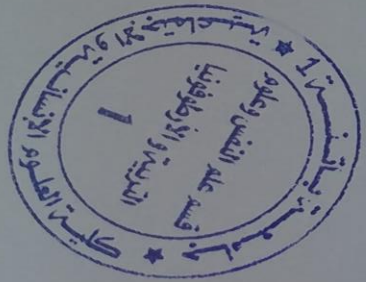 جامعة باتنة 1
كلية العلوم الإنسانية والاجتماعية
قسم علم النفس وعلوم
التربية والأرطوفونيا
1